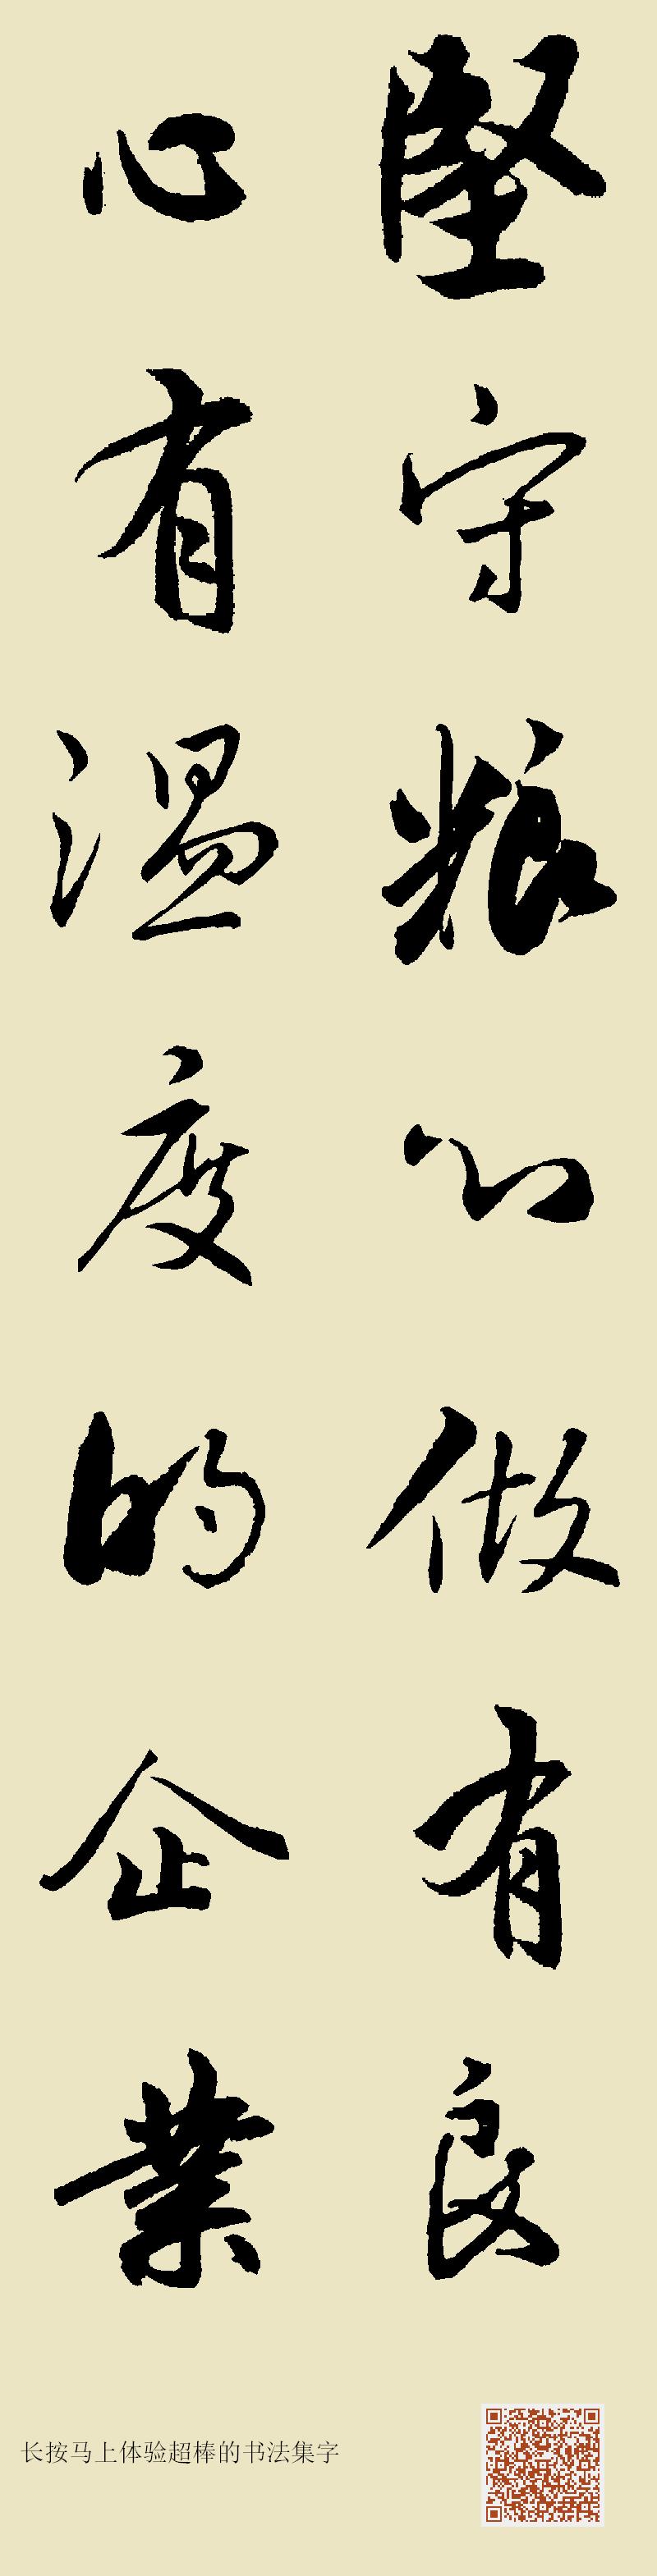 堅守粮心做有良
心有温度的企業
长按马上体验超棒的书法集字